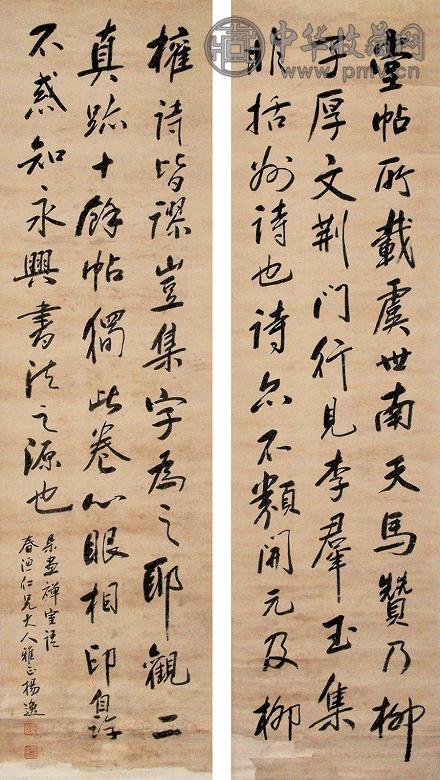 中华收藏网
www.pmv.cn
堂帖所載虞世南天馬贊乃柳
子厚文荊門行見李羣玉集
括州詩也詩亦不類開元及柳
權詩皆謬豈集字為之耶觀二
真跡十餘帖獨此卷心眼相印自許
不惑知永興書法之源也
畫禪室語
春漁仁兄大人雅正楊逸